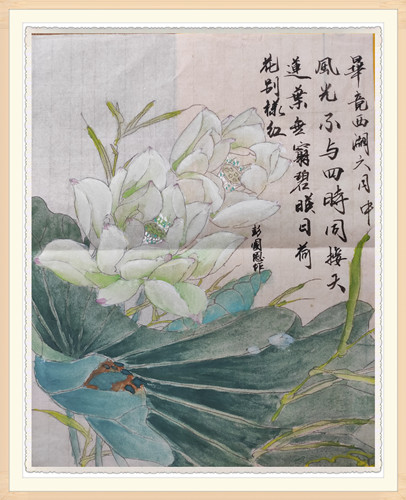 畢竟西湖六月中
風光不与四時同接天
蓮葉無窮碧暎日荷
花别樣紅
彭國恩作